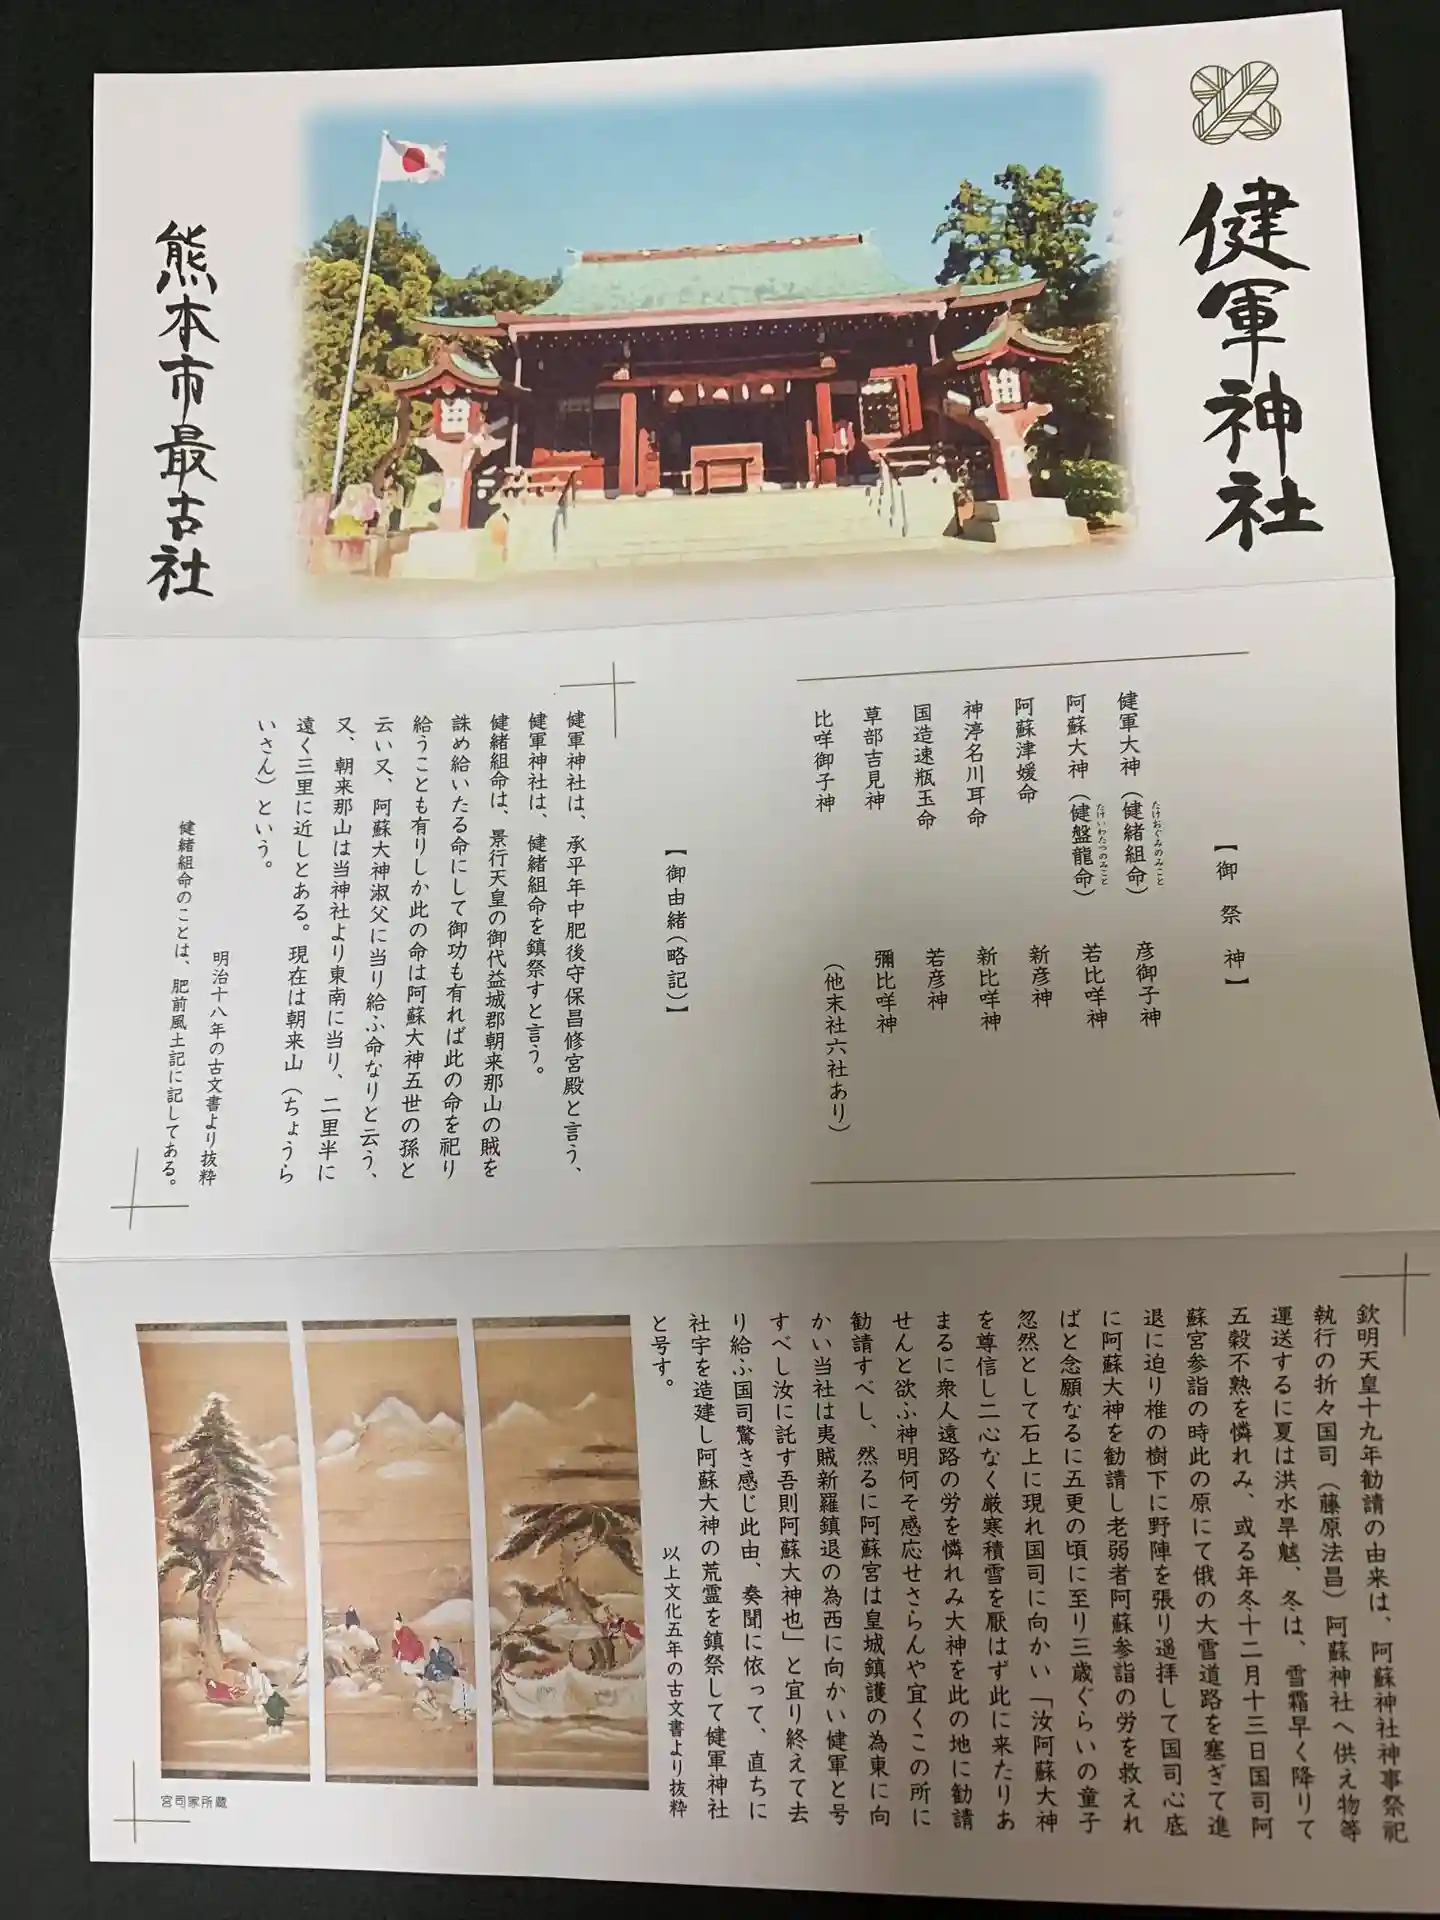 健軍神社
熊本市最古社
【御祭神】
健軍大神（健緒組命）
たけおぐみのみこと
阿蘇大神（健盤龍命）
たけいわたつのみこと
阿蘇津媛命
神渟名川耳命
国造速瓶玉命
草部吉見神
比咩御子神
彦御子神
若比咩神
新彦神
新比咩神
若彦神
彌比咩神
（他末社六社あり）
【御由緒（略記）】
健軍神社は、承平年中肥後守保昌修宮殿と言う、
健軍神社は、健緒組命を鎮祭すと言う。
健緒組命は、景行天皇の御代益城郡朝来那山の賊を
誅め給いたる命にして御功も有れば此の命を祀り
給うことも有りしか此の命は阿蘇大神五世の孫と
云い又、阿蘇大神淑父に当り給ふ命なりと云う、
又、朝来那山は当神社より東南に当り、二里半に
遠く三里に近しとある。現在は朝来山（ちょうら
いさん）という。
明治十八年の古文書より抜粋
健緒組命のことは、肥前風土記に記してある。
欽明天皇十九年勧請の由来は、阿蘇神社神事祭祀
執行の折々国司（藤原法昌）阿蘇神社へ供え物等
運送するに夏は洪水旱魃、冬は、雪霜早く降りて
五穀不熟を憐れみ、或る年冬十二月十三日国司阿
蘇宮参詣の時此の原にて俄の大雪道路を塞ぎて進
退に迫り椎の樹下に野陣を張り遥拝して国司心底
に阿蘇大神を勧請し老弱者阿蘇参詣の労を救えれ
ばと念願なるに五更の頃に至り三歳ぐらいの童子
忽然として石上に現れ国司に向かい「汝阿蘇大神
を尊信し二心なく厳寒積雪を厭はず此に来たりあ
まるに衆人遠路の労を憐れみ大神を此の地に勧請
せんと欲ふ神明何そ感応せさらんや宜くこの所に
勧請すべし、然るに阿蘇宮は皇城鎮護の為東に向
かい当社は夷賊新羅鎮退の為西に向かい健軍と号
すべし汝に託す吾則阿蘇大神也」と宜り終えて去
り給ふ国司驚き感じ此由、奏聞に依って、直ちに
社宇を造建し阿蘇大神の荒霊を鎮祭して健軍神社
と号す。
以上文化五年の古文書より抜粋
宮司家所蔵